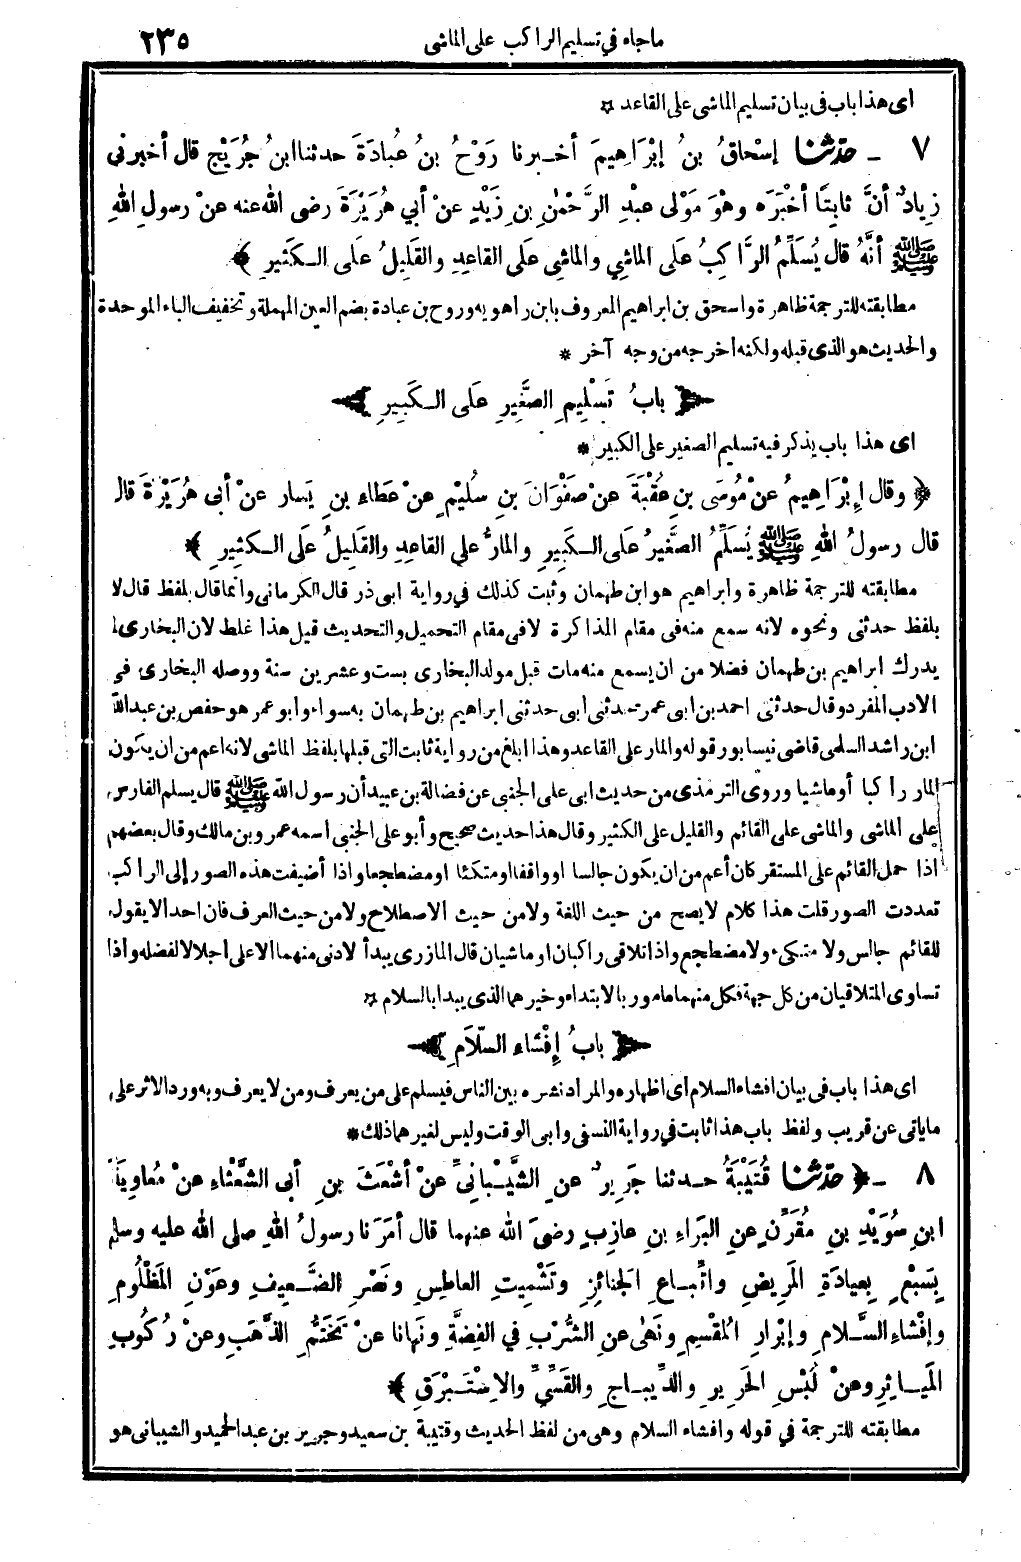 ماجاء في تسليم الراكب على الماشي ٢٣٥
اى هذا باب فى بيان تسليم الماشى على القاعد
٧ ـ حدّثنا إسْحاقُ بنُ إبْرَاهِيمَ أخـبرنا رَوْحُ بنُ عُبادَةَ حدثنا ابنُ جُرَيْج قال أخبرنى
زِيادٌ أنَّ ثابِتًا أخْبَرَه وهْوَ مَوْلى عبْدِ الرَّحْمٰنِ بنِ زَيْدٍ عنْ أبي هُرَيْرَةَ رضى الله عنه عنْ رسولِ اللهِ
ﷺ أنَّهُ قال يُسَلِّمُ الرَّاكِبُ عَلى الماشِي والماشِى عَلى القاعِدِ والقَلِيلُ عَلى الـكَثيرِ ﴾
مطابقته للترجمة ظاهرة واسحق بن ابراهيم المعروف بابن راهويه وروح بن عبادة بضم العين المهملة وتخفيف الباء الموحدة
والحديث هو الذى قبله ولكنه أخرجه من وجه آخر *
﴿ بابُ تَسْلِيمِ الصَّغِيرِ عَلَى الـكَبِيرِ ﴾
اى هذا باب يذكر فيه تسليم الصغير على الكبير *
﴿ وقال إبْرَاهِيمُ عنْ مُوسَى بنِ عُقْبَةَ عنْ صَفْوَانَ بنِ سُلَيْمٍ عنْ عَطاءِ بنِ يَسار عنْ أبى هُرَيْرَةَ قال
قال رسولُ اللهِ ﷺ يُسَلِّمُ الصَّغيرُ عَلى الـكَبِيرِ والمارُّ على القاعِدِ والقَلِيلُ عَلَى الـكَثِيرِ ﴾
مطابقته للترجمة ظاهرة وابراهيم هو ابن طهمان وثبت كذلك في رواية ابى ذر قال الكرمانى وانما قال بلفظ قال لا
بلفظ حدثنى ونحوه لانه سمع منه فى مقام المذاكرة لا فى مقام التحميل والتحديث قيل هذا غلط لان البخارى لم
يدرك ابراهيم بن طهمان فضلا من ان يسمع منه مات قبل مولد البخارى بست وعشرين سنة ووصله البخارى فى
الادب المفرد وقال حدثنى احمد بن ابى عمر حدثنى أبى حدثنى ابراهيم بن طهمان به سواء وابو عمر هو حفص بن عبدالله
ابن راشد السلمى قاضى نيسابور قوله والمار على القاعد وهذا ابلغ من رواية ثابت التى قبلها بلفظ الماشى لانه اعم من ان يكون
المار راكبا أو ماشيا وروى الترمذى من حديث ابى على الجنبى عن فضالة بن عبيد أن رسول الله ﷺ قال يسلم الفارس
على الماشى والماشى على القائم والقليل على الكثير وقال هذا حديث صحيح وأبو على الجنبى اسمه عمرو بن مالك وقال بعضهم
اذا حمل القائم على المستقر كان أعم من ان يكون جالسا او واقفا او متكئا او مضطجعا واذا أضيفت هذه الصور إلى الراكب
تعددت الصور قلت هذا كلام لا يصح من حيث اللغة ولا من حيث الاصطلاح ولا من حيث العرف فان احدا لا يقول
للقائم جالس ولا متكىء ولا مضطجع واذا تلاقى راكبان او ماشيان قال المازرى يبدأ لادنى منهما الاعلى اجلالا لفضله واذا
تساوى المتلاقيان من كل جهة فكل منهما مامور بالابتداء وخيرهما الذى يبدا بالسلام
﴿ بابُ إفْشاءِ السَّلَامِ ﴾
اى هذا باب فى بيان افشاء السلام أى اظهاره والمراد نشره بين الناس فيسلم على من يعرف ومن لا يعرف وبه ورد الاثر على
ماياتى عن قريب ولفظ باب هذا ثابت في رواية النسفى وابى الوقت وليس لغيرهما ذلك *
٨ ـ ﴿ حدّثنا قُتَيْبَةُ حـدثنا جَرِيرٌ عنِ الشَّيْبانِيِّ عنْ أشْعَثَ بنِ أبى الشَّعْثاءِ عنْ مُعاوِيَةَ
ابنِ سُوَيْدِ بنِ مُقَرِّنٍ عنِ البَرَاءِ بنِ عازِبٍ رضىَ الله عنهما قال أمَرَنا رسولُ اللهِ صلى الله عليه وسلم
بِسَبْعٍ بِعيادَةِ المَرِيضِ واتِّباعِ الجَنائِزِ وتَشْمِيتِ العاطِسِ ونَصْرِ الضَّعِيفِ وعَوْنِ المَظْلُومِ
وإفْشاءِ السَّلامِ وإبْرَارِ المُقْسِمِ ونَهَى عنِ الشُّرْبِ في الفِضَّةِ ونَهانا عنْ تَخَتُّمِ الذَّهَبِ وعنْ رُكُوبِ
المَياثِرِ وعنْ لُبْسِ الحَرِيرِ والدِّيباجِ والقَسِّيِّ والإسْتَبْرَقِ ﴾
مطابقته للترجمة في قوله وافشاء السلام وهى من لفظ الحديث وقتيبة بن سعيد وجرير بن عبد الحميد والشيبانى هو